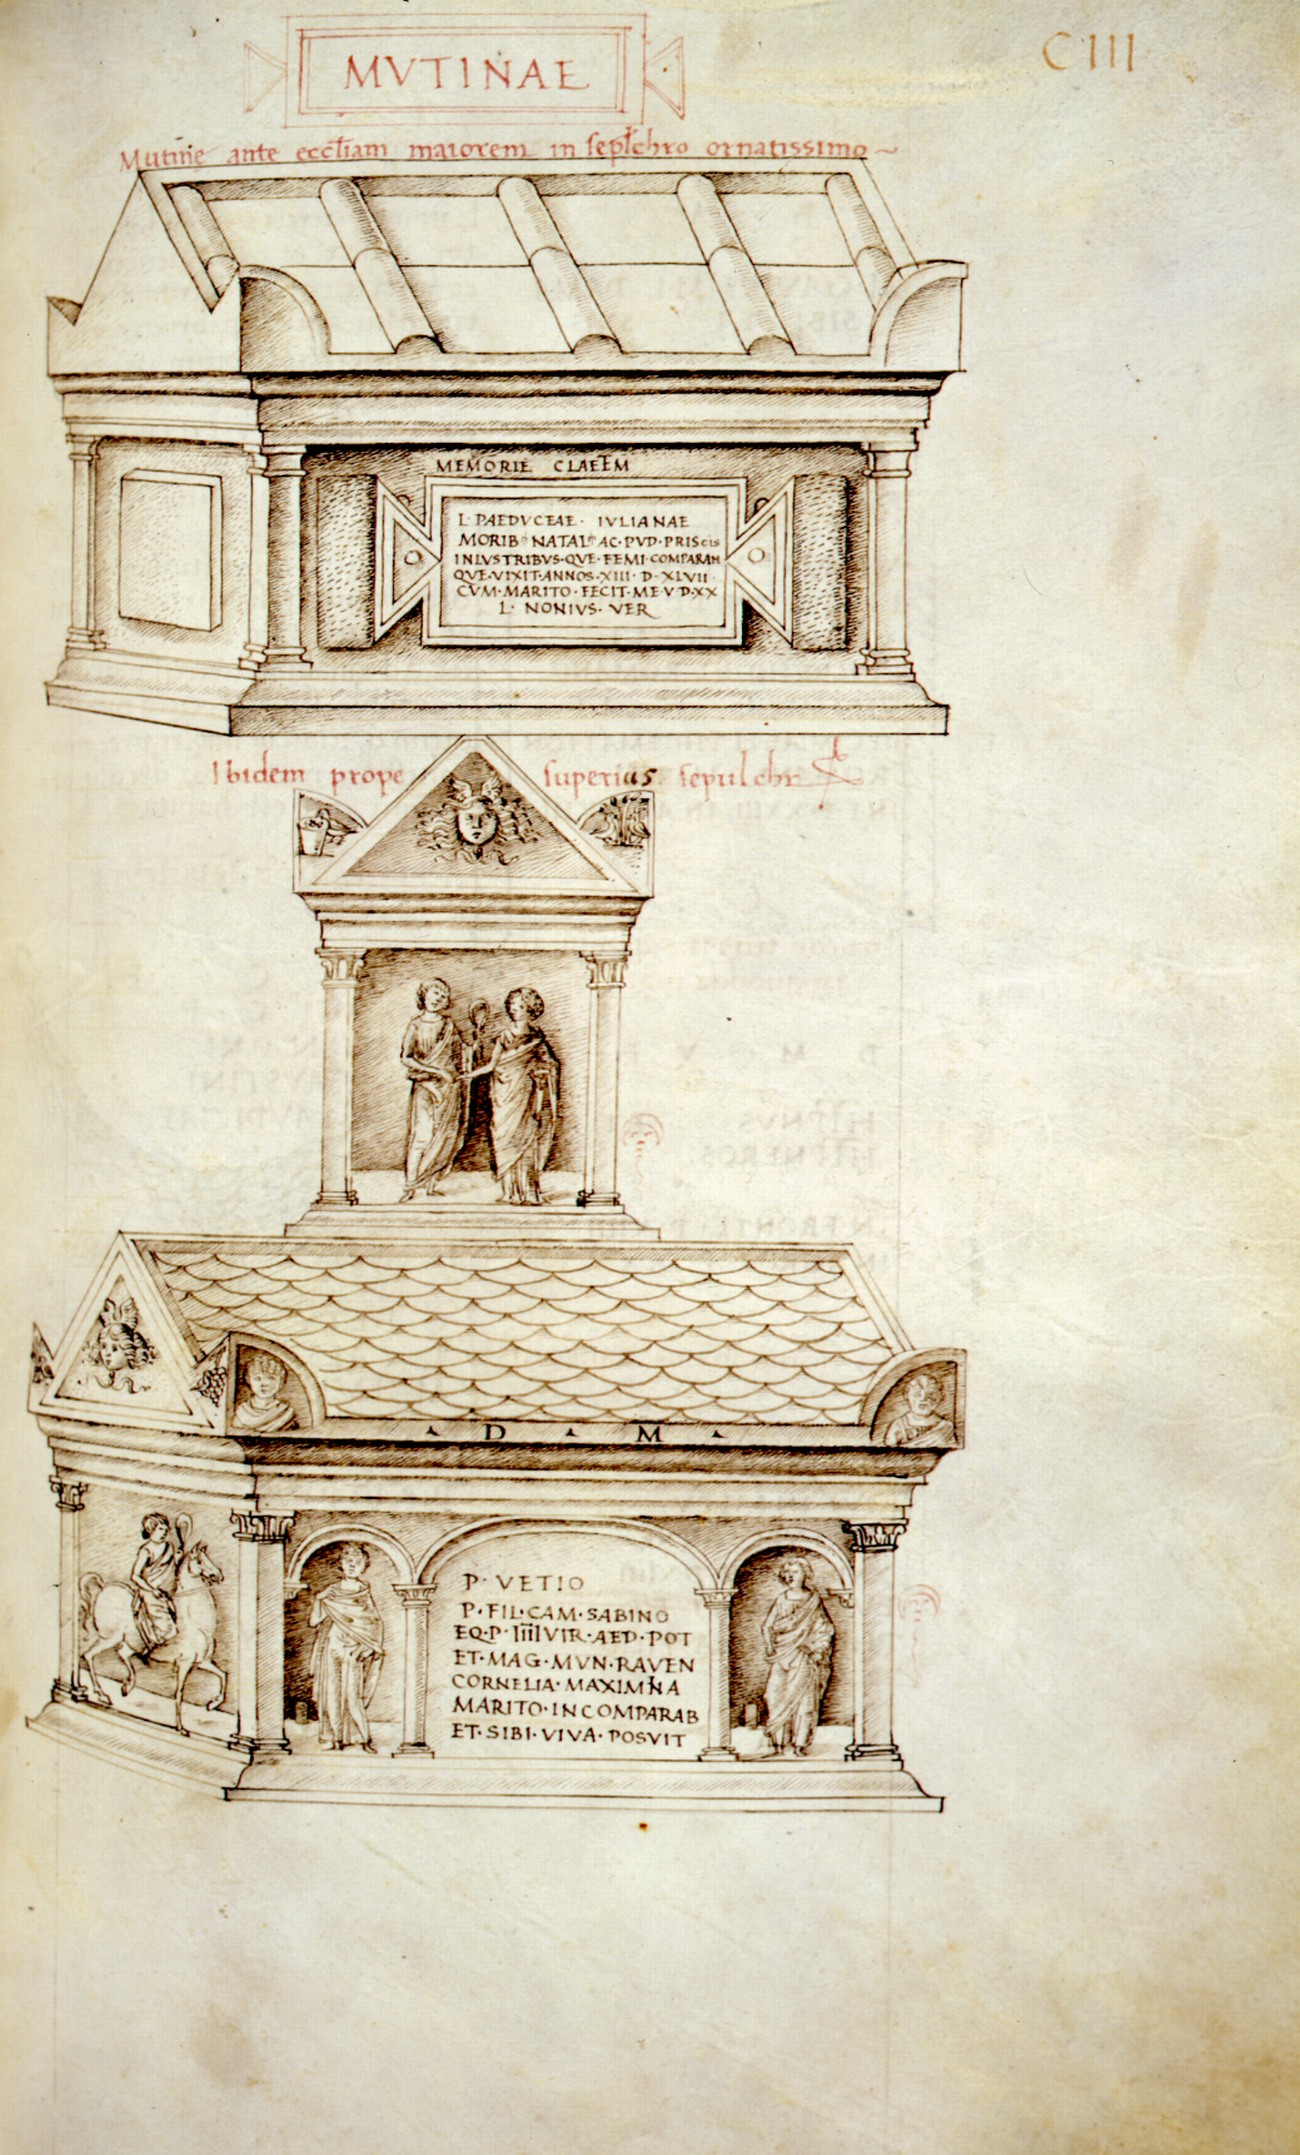 CIII
MVTINAE
Mutine ante eccl̄iam maiorem in sepl̄chro ornatissimo
MEMORIE CLAETEM
L· PAEDVCEAE· IVLIANAE
MORIB NATAL AC·PVD·PRIScis
INLVSTRIBVS·QVE·FEMI·COMPARAN
QVE·VIXIT·ANNOS·XIII·D·XLVII
CVM·MARITO·FECIT·ME·V·D·XX
L· NONIVS· VER
Ibidem prope superius sepulchr
D M
P· VETIO
P·FIL·CAM·SABINO
EQ·P·IIIIVIR·AED·POT
ET·MAG·MVN·RAVEN
CORNELIA·MAXIMINA
MARITO·INCOMPARAB
ET·SIBI·VIVA·POSVIT